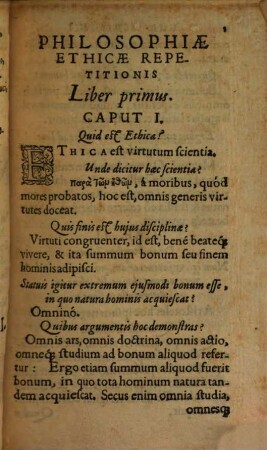 PHILOSOPHIÆ
ETHICÆ REPE-
TITIONIS
Liber primus.
CAPUT I.
Quid est Ethica?
ETHICA est virtutum scientia.
Unde dicitur hæc scientia?
παρὰ τῶν ἐθῶν, à moribus, quód
mores probatos, hoc est, omnis generis vir-
tutes doceat.
Quis finis est hujus disciplinæ?
Virtuti congruenter, id est, bené beateq́;
vivere, & ita summum bonum seu finem
hominis adipisci.
Statuis igitur extremum ejusmodi bonum esse,
in quo natura hominis acquiescat?
Omninò.
Quibus argumentis hoc demonstras?
Omnis ars, omnis doctrina, omnis actio,
omneq́; studium ad bonum aliquod refer-
tur: Ergo etiam summum aliquod fuerit
bonum, in quo tota hominum natura tan-
dem acquiescat. Secus enim omnia studia,
omnesq́;